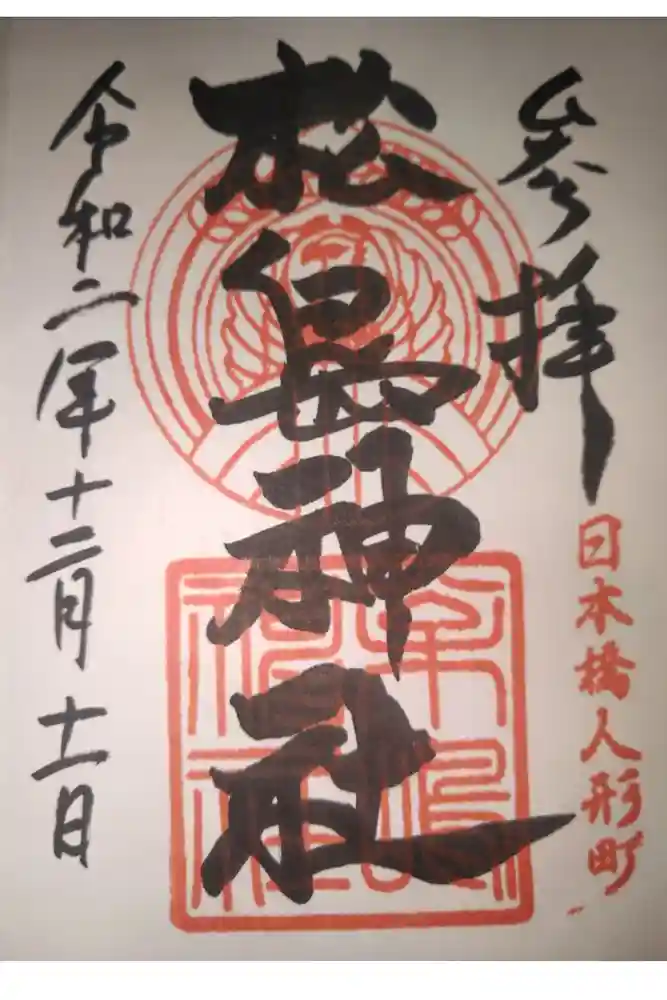 参拝
日本橋人形町
松島神社
令和二年十二月十一日